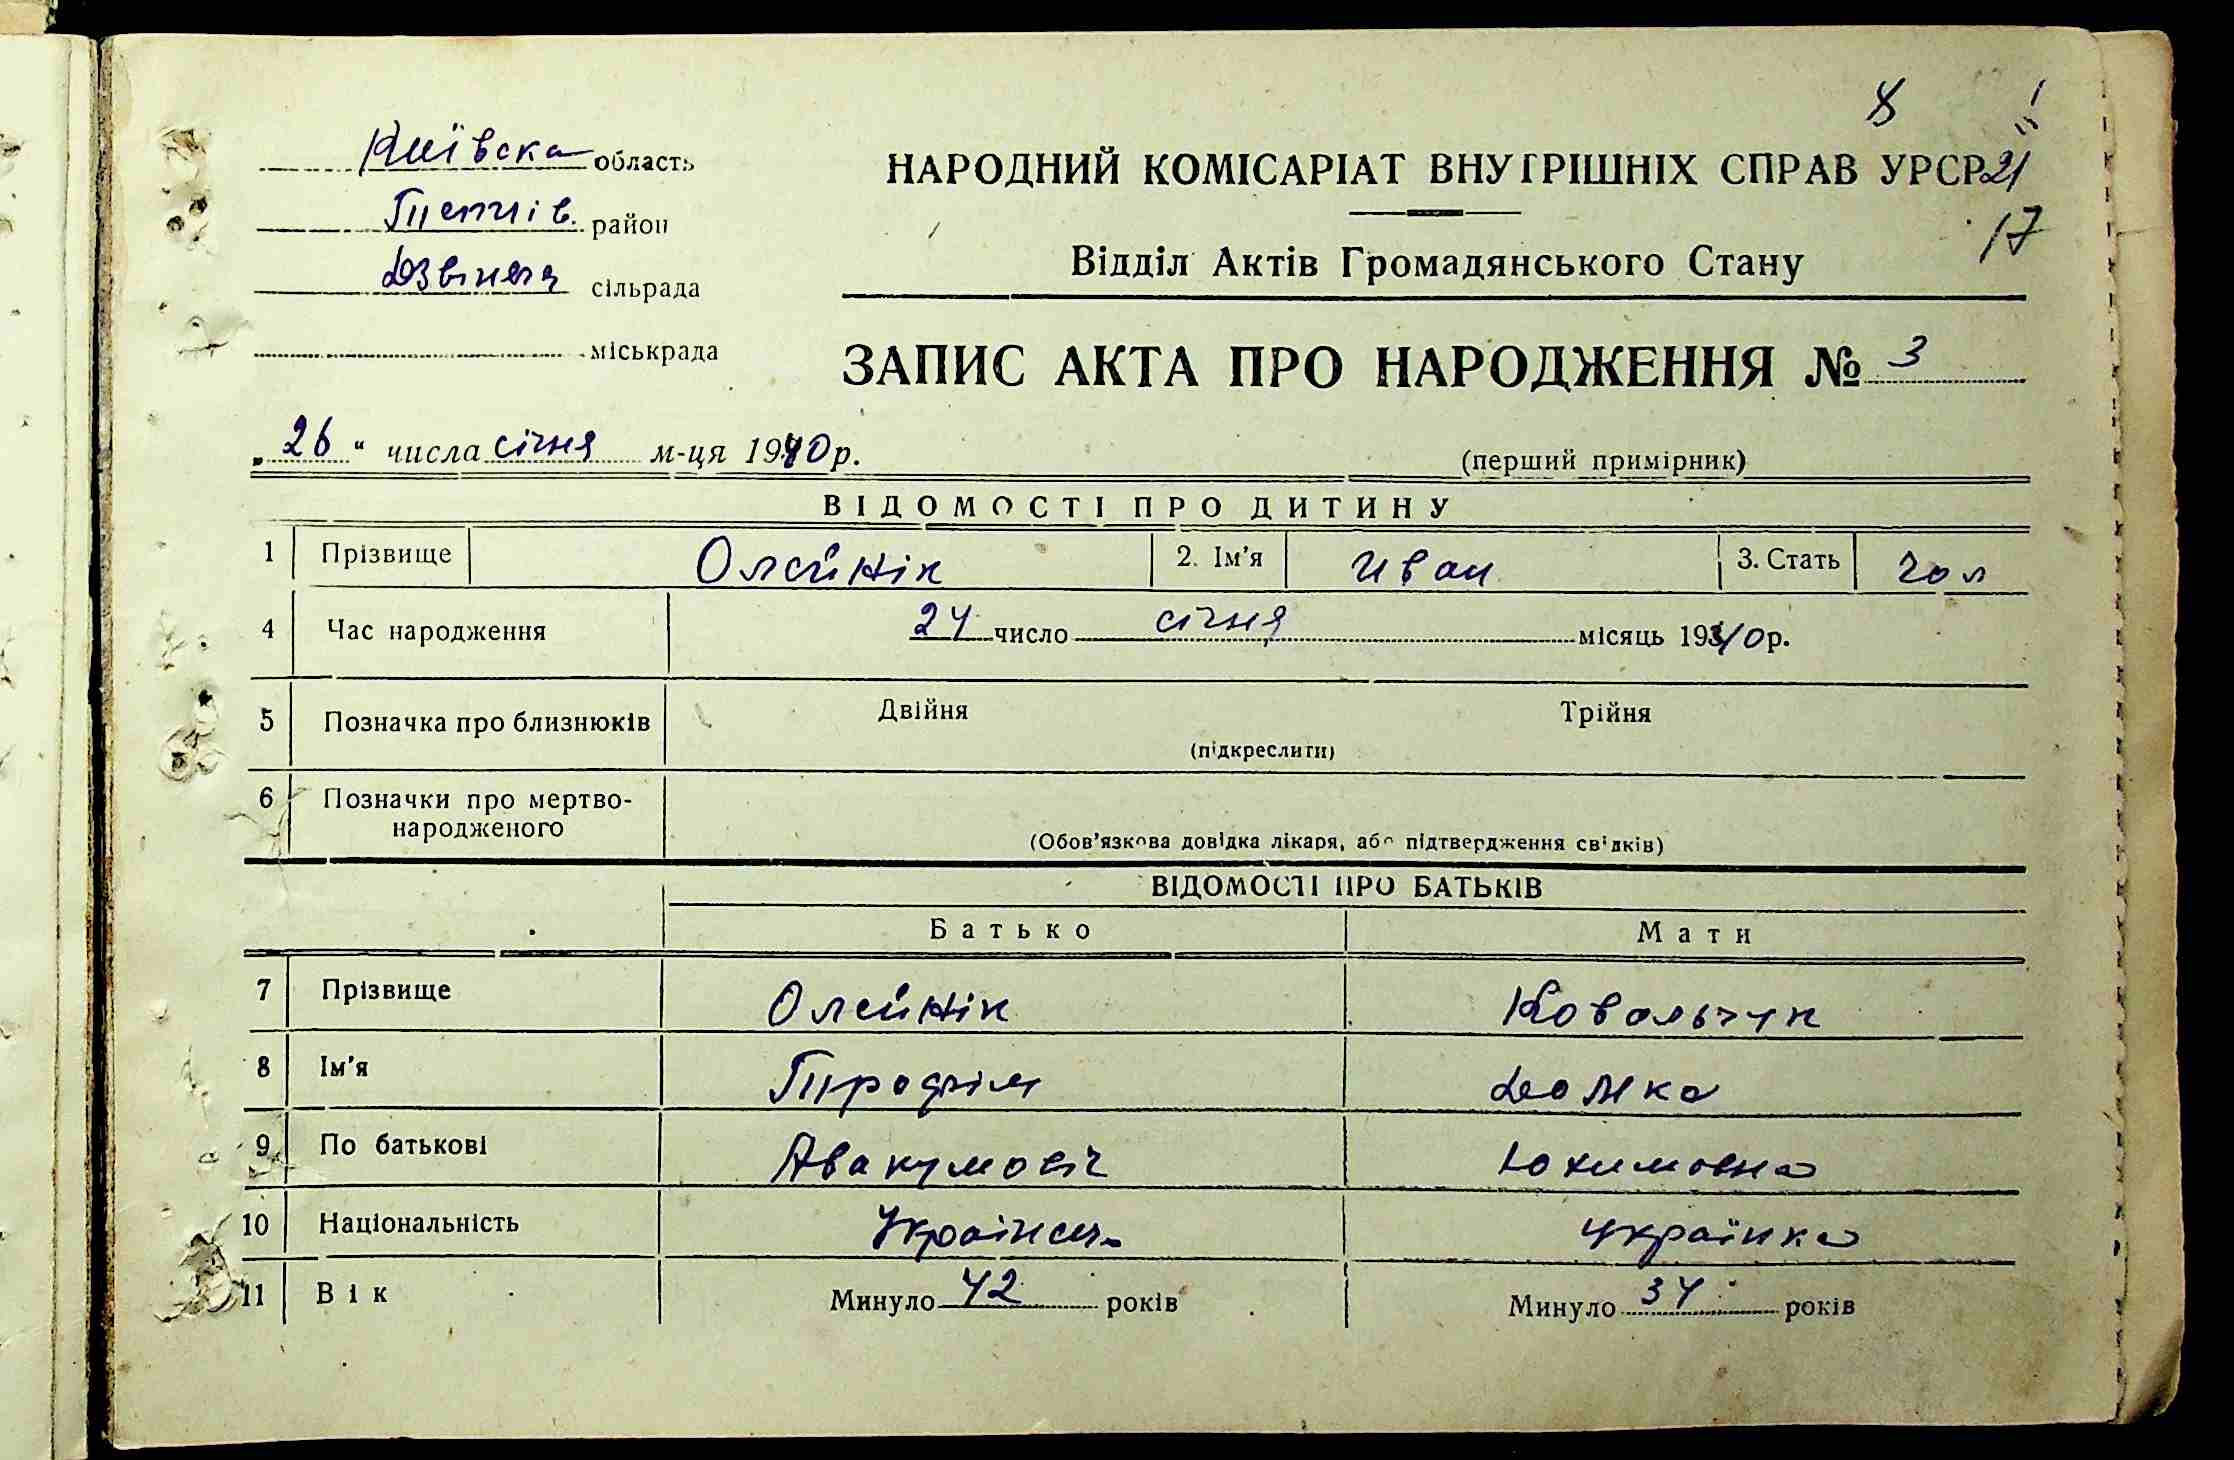 8
Київска область
Тетіїв. район
Дзвіняч сільрада
міськрада
НАРОДНИЙ КОМІСАРІАТ ВНУТРІШНІХ СПРАВ УРСР
21
17
Відділ Актів Громадянського Стану
ЗАПИС АКТА ПРО НАРОДЖЕННЯ № 3
„26“ числа січня м-ця 1940 р.
(перший примірник)
ВІДОМОСТІ ПРО ДИТИНУ
1 Прізвище Олейнік 2. Ім'я Иван 3. Стать чол
4 Час народження 24 число січня місяць 1940 р.
5 Позначка про близнюків Двійня Трійня
(підкреслити)
6 Позначки про мертво-
народженого
(Обов'язкова довідка лікаря, або підтвердження свідків)
ВІДОМОСТІ ПРО БАТЬКІВ
Батько Мати
7 Прізвище Олейнік Ковальчук
8 Ім'я Трофім Домка
9 По батькові Авакумовіч Юхимовна
10 Національність Українець українка
11 Вік Минуло 42 років Минуло 34 років